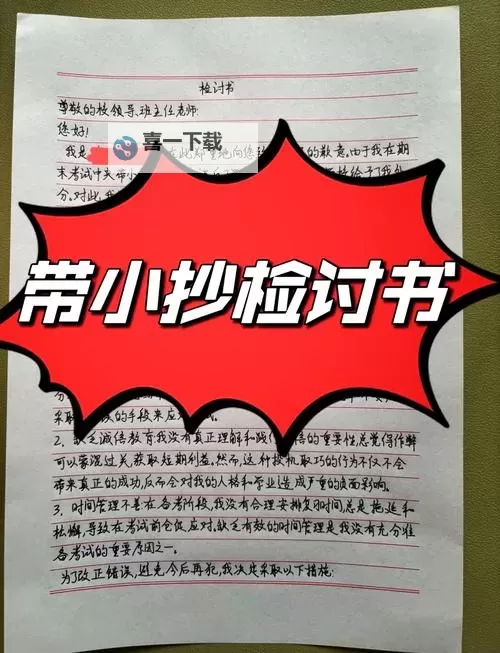 检讨书
尊敬的校领导、班主任老师:
您好!
喜一下载
我是 在此郑重地向您致 的歉意。由于我在期
末考试中夹带小 给予了我处
分。对此,我
带小抄检讨书
分
采取 的手段来应
2、缺乏诚信教育我没有真正理解和践 信的重要性,总觉得作弊
可以蒙混过关,获取短期利益。然而,这种投机取巧的行为不仅不会
带来真正的成功,反而会对我的人格和学业造成严重的负面影响。
3、时间管理不善在备考阶段,我没有合理安排复习时间,总是拖延和
松懈,导致在考试前仓促应对。缺乏有效的时间管理是我没有充分准
备考试的重要原因之一。
为了改正错误,避免今后再犯,我决定采取以下措施: